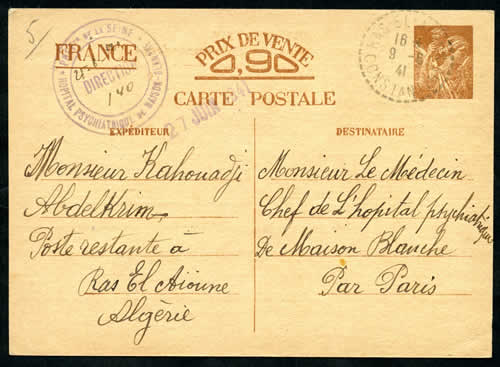 5
FRANCE
PRIX DE VENTE
0,90
CARTE POSTALE
DE LA SEINE
HOPITAL PSYCHIATRIQUE DE MAISON-BLANCHE
DIRECTION
140
27 JUIN 1941
16
9 -6
41
CONSTANTINE
EXPÉDITEUR
Monsieur Kahouadji
Abdelkrim
Poste restante à
Ras El Aioune
Algérie
DESTINATAIRE
Monsieur Le Médecin
Chef de L'hopital psychiatrique
De Maison Blanche
Par Paris